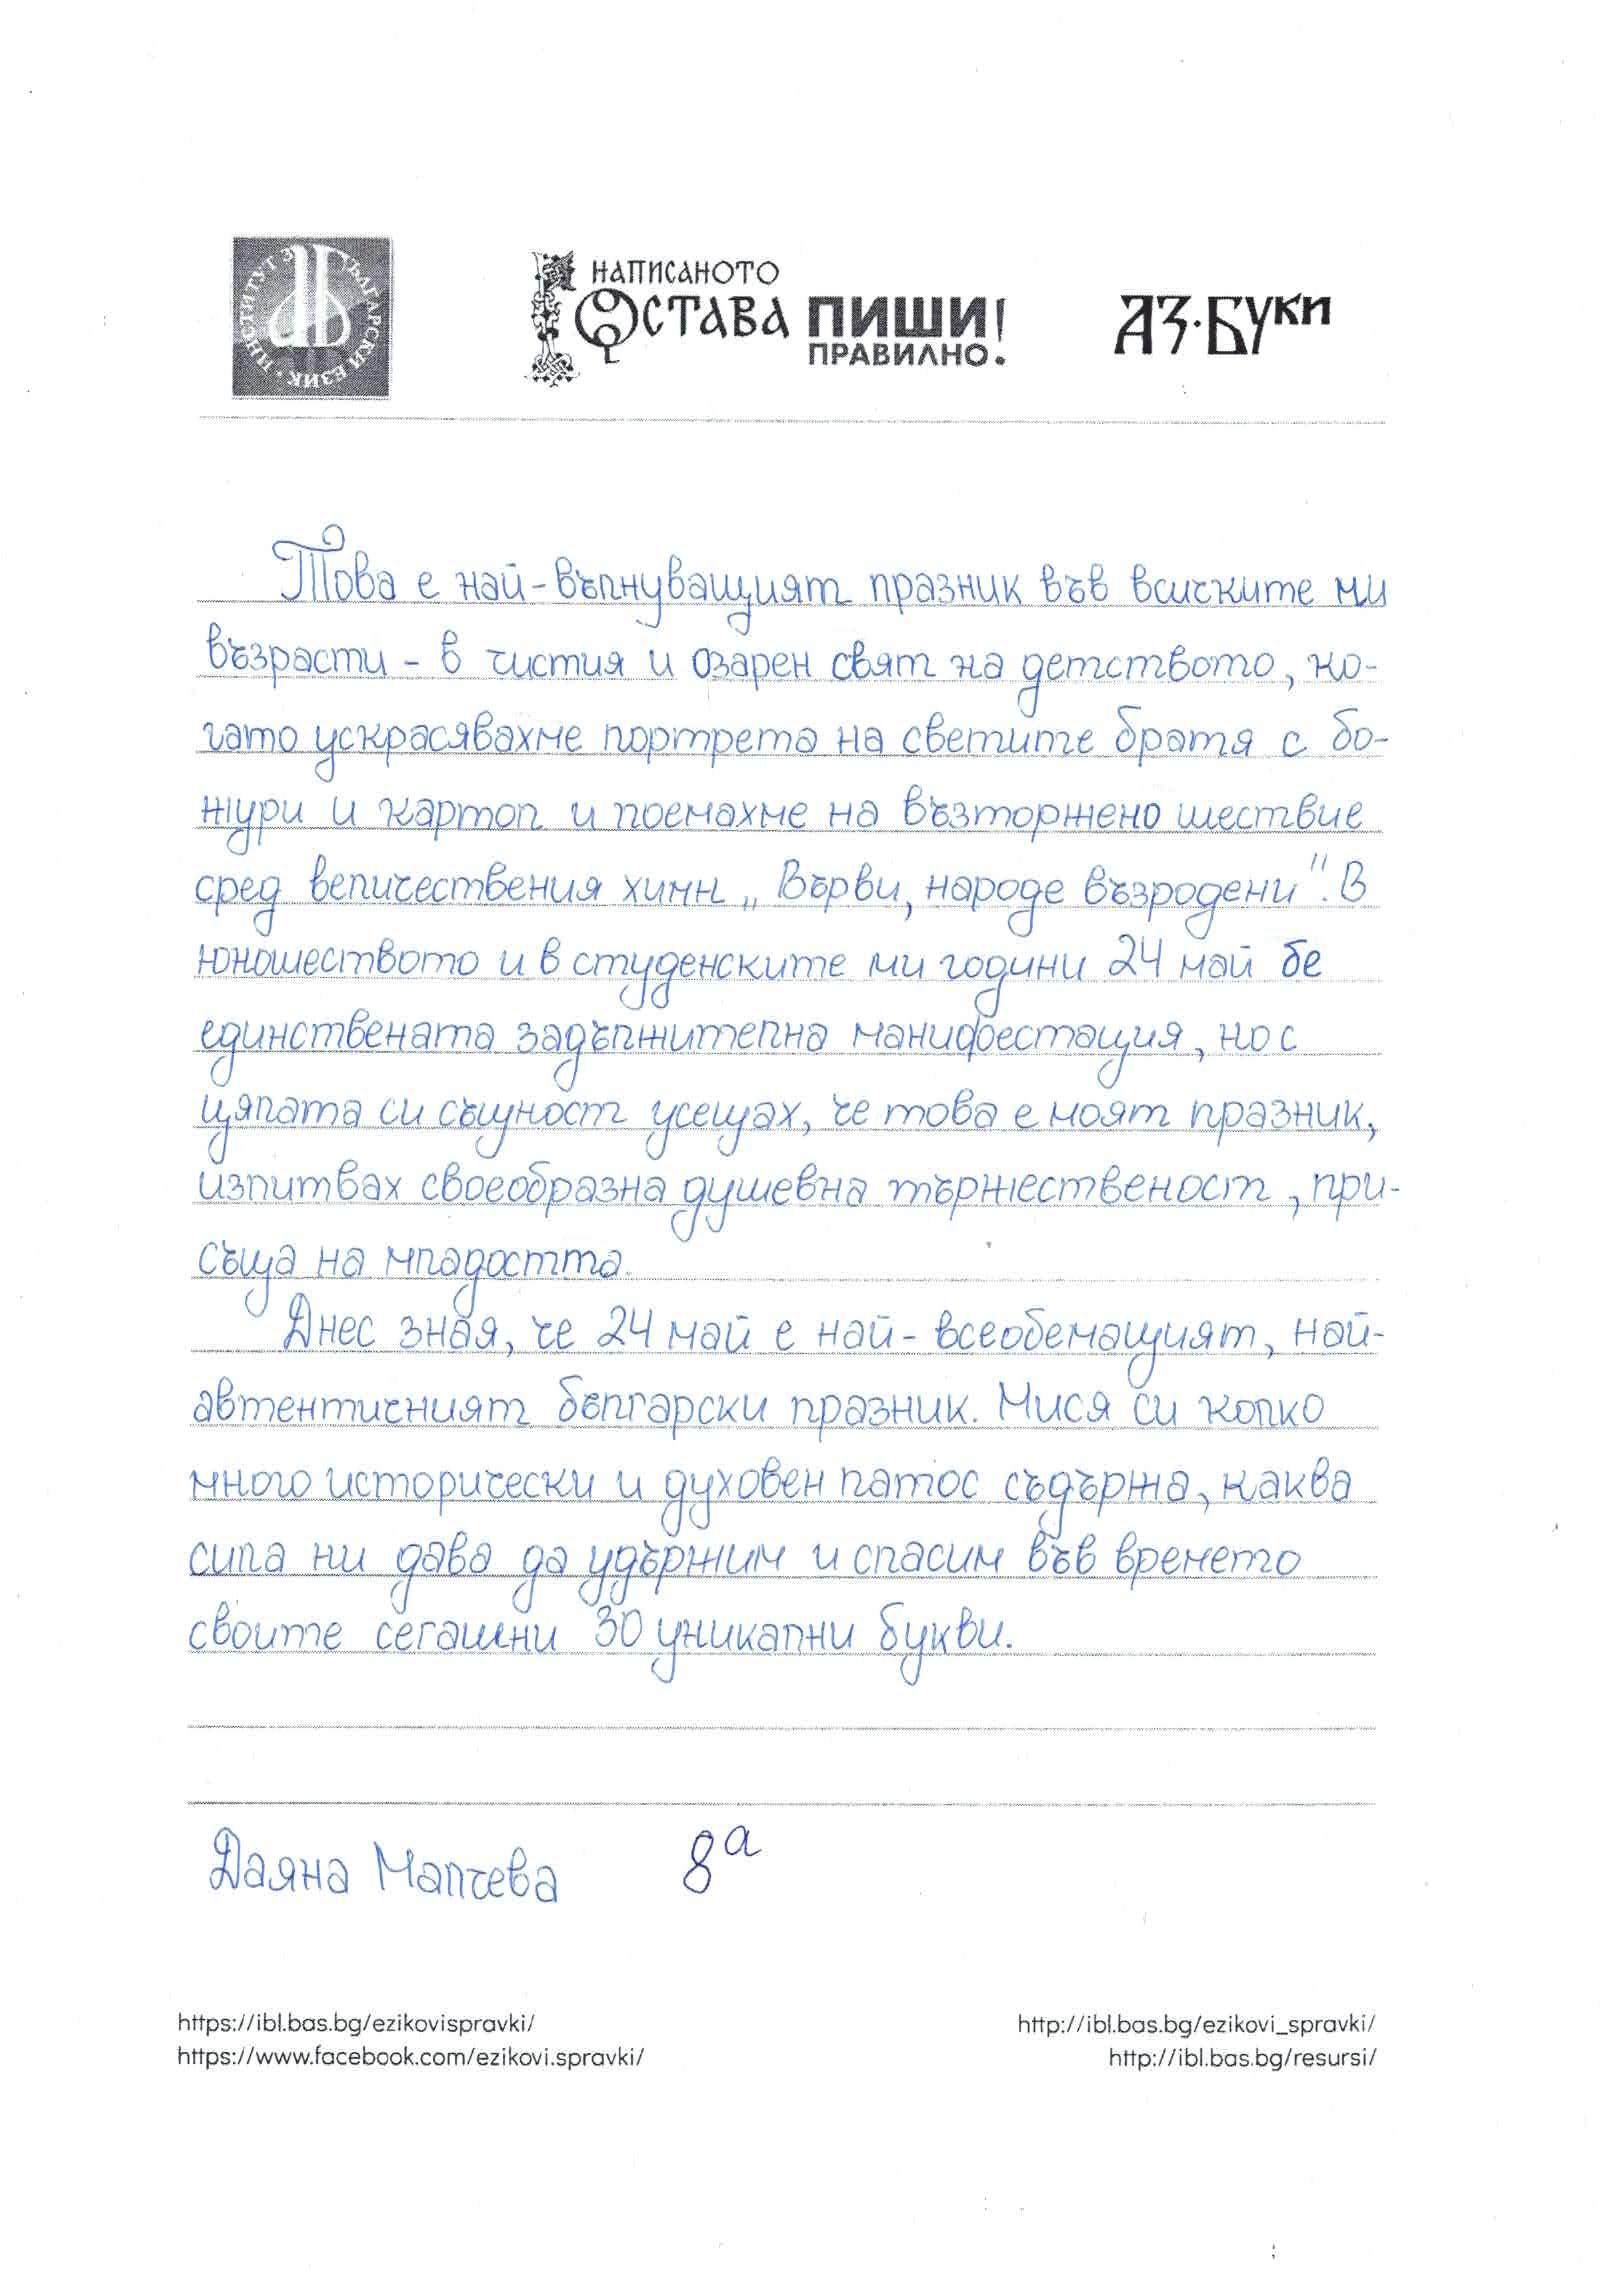 ИНСТИТУТ ЗА БЪЛГАРСКИ ЕЗИК
НАПИСАНОТО
ОСТАВА ПИШИ!
ПРАВИЛНО.
АЗ·БУКИ
Това е най-вълнуващият празник във всичките ми
възрасти - в чистия и озарен свят на детството, ко-
гато украсявахме портрета на светите братя с бо-
жури и картоп и поемахме на възторжено шествие
сред величествения химн „Върви, народе възродени". В
юношеството и в студенските ми години 24 май бе
единствената задължителна манифестация, но с
цялата си същност усещах, че това е моят празник,
изпитвах своеобразна душевна тържественост, при-
съща на младостта.
Днес зная, че 24 май е най-всеобемащият, най-
автентичният български празник. Мися си колко
много исторически и духовен патос съдържа, каква
сила ни дава да удържим и спасим във времето
своите сегашни 30 уникални букви.
Даяна Малчева 8а
https://ibl.bas.bg/ezikovispravki/ http://ibl.bas.bg/ezikovi_spravki/
https://www.facebook.com/ezikovi.spravki/ http://ibl.bas.bg/resursi/